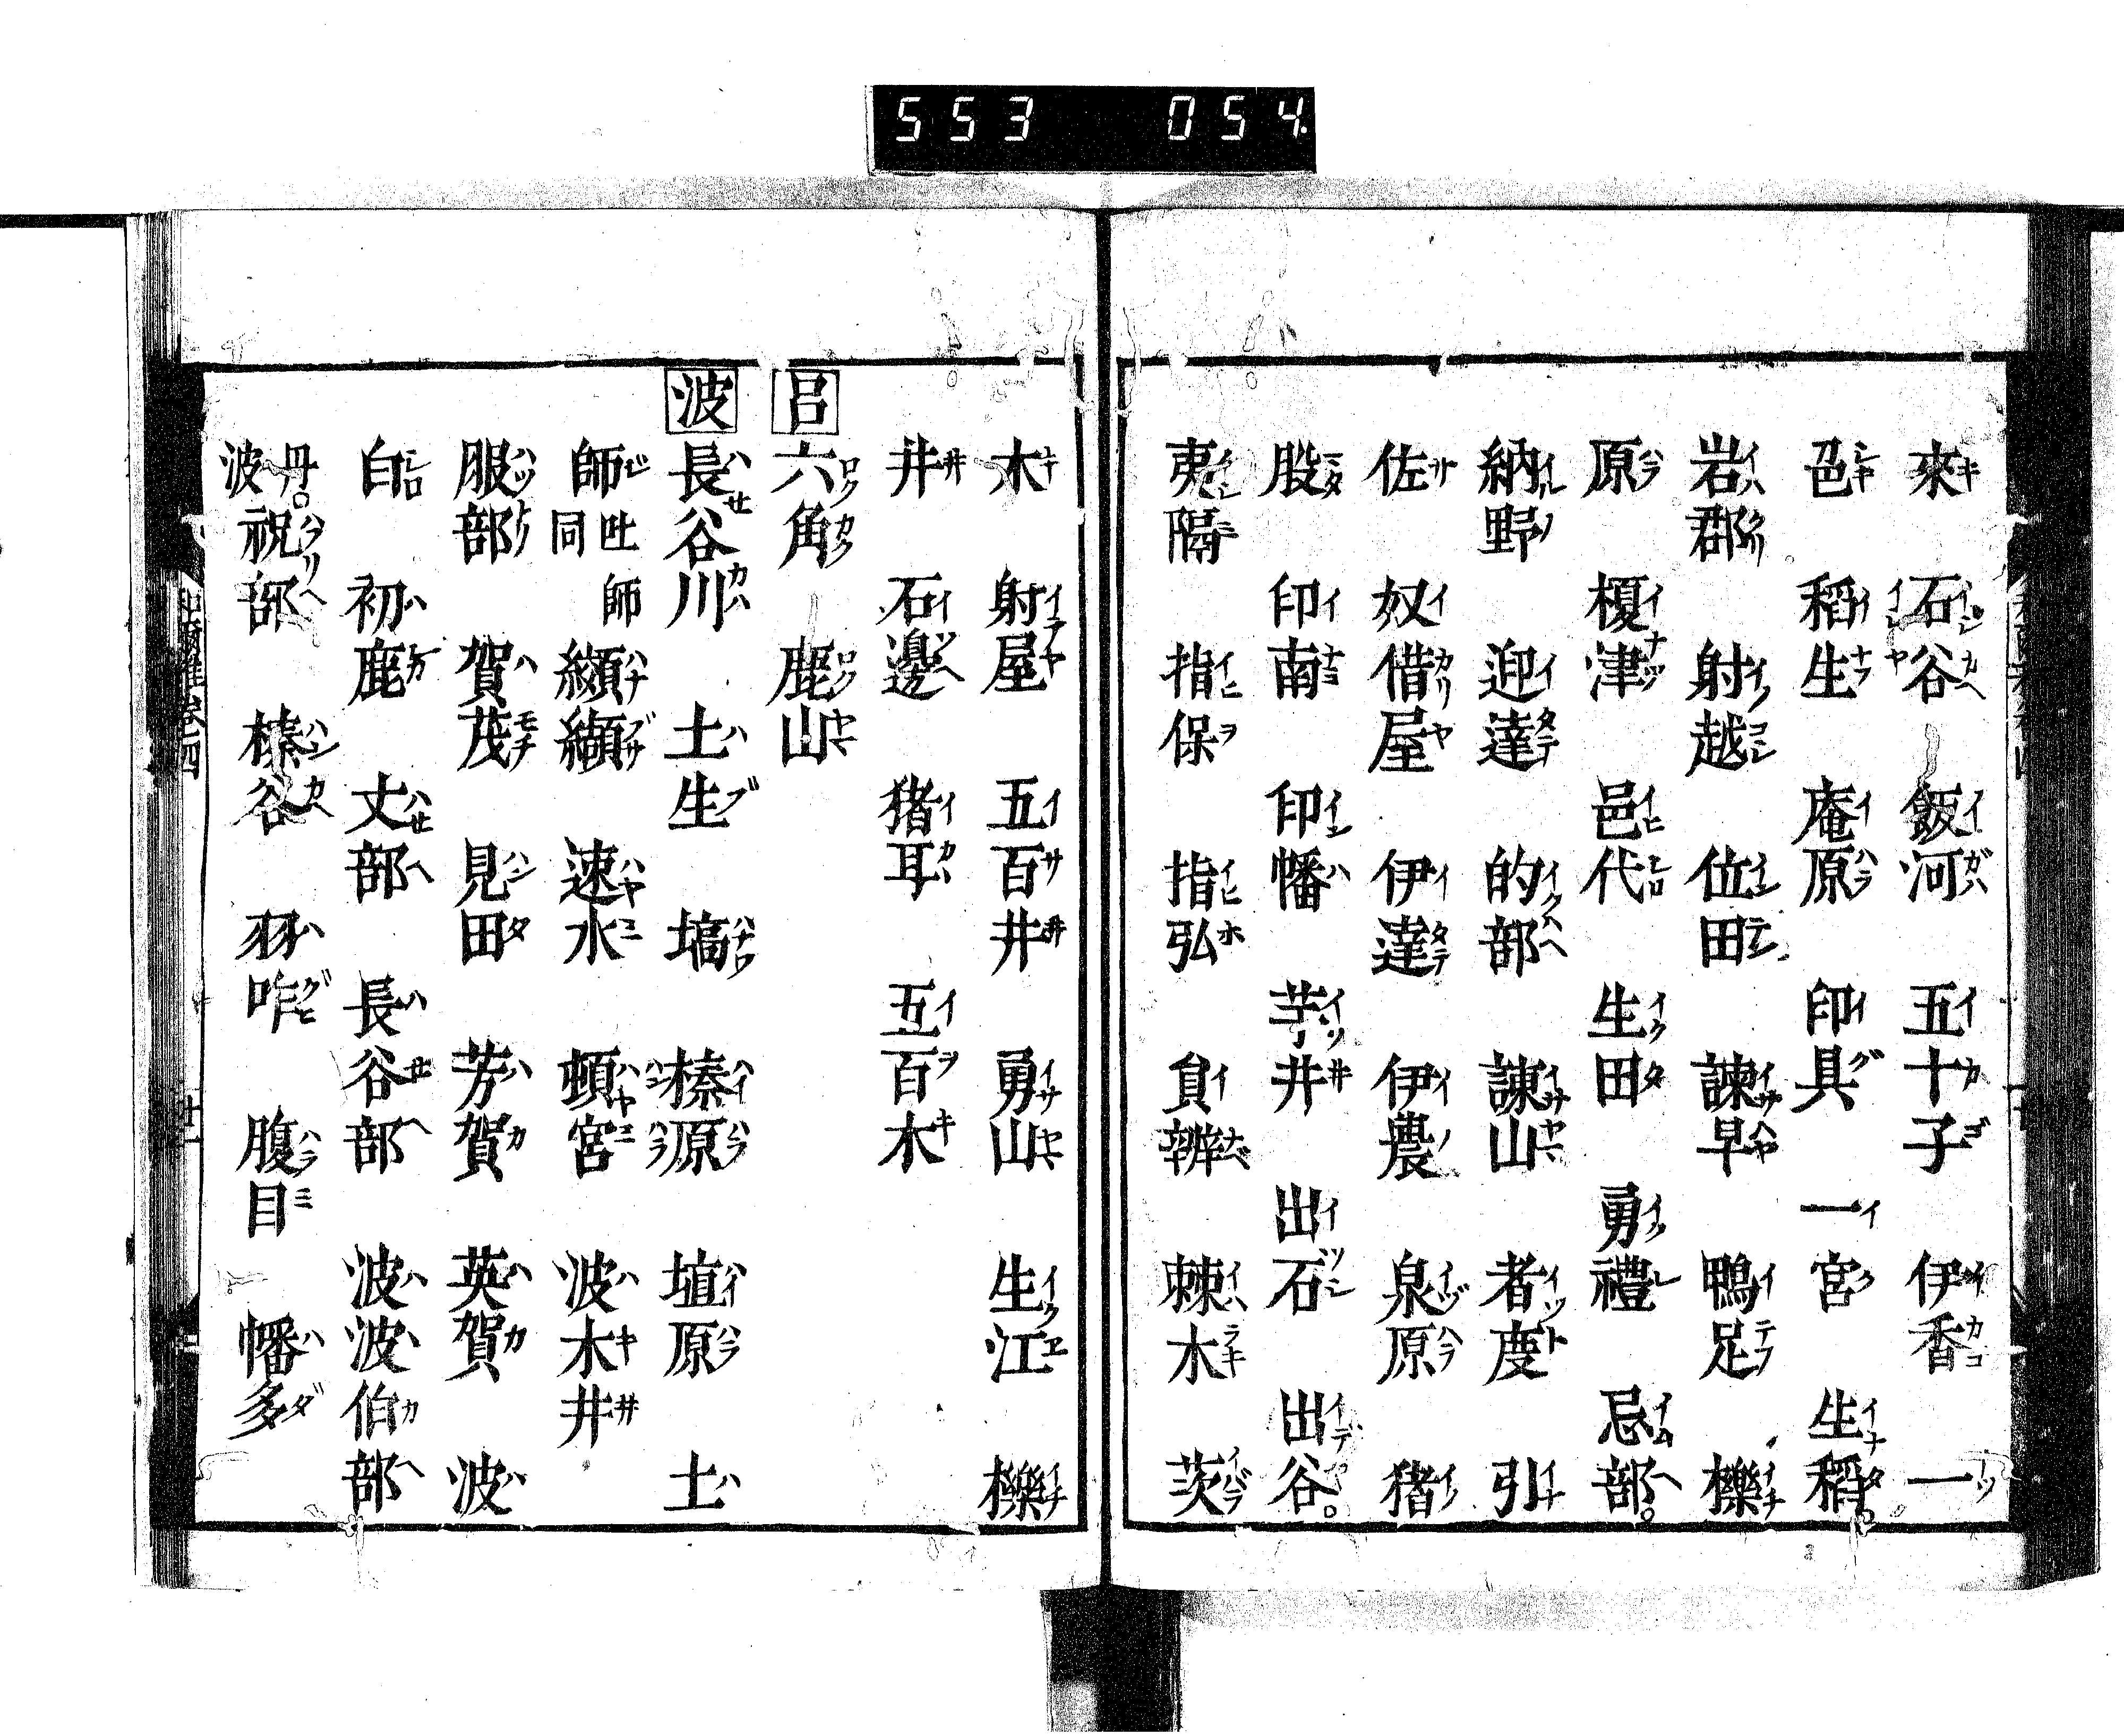 553 054
來 石谷 飯河 五十子 伊香 一
邑 稻生 庵原 印具 一宮 生稻
岩郡 射越 位田 諫早 鴨足 櫟
原 榎津 邑代 生田 勇禮 忌部
納野 迎達 的部 諫山 者度 引
佐 奴借屋 伊達 伊農 泉原 猪
股 印南 印幡 芋井 出石 出谷
夷隔 指保 指弘 負辨 棘木 茨
木 射屋 五百井 勇山 生江 櫟
井 石邊 猪耳 五百木
呂 六角 鹿山
波 長谷川 土生 塙 榛原 埴原 土
師 吐師同 纐纈 速水 頓宮 波木井
服部 賀茂 見田 芳賀 英賀 波
白 初鹿 丈部 長谷部 波波伯部
丹波 祝部 榛谷 羽咋 腹目 幡多